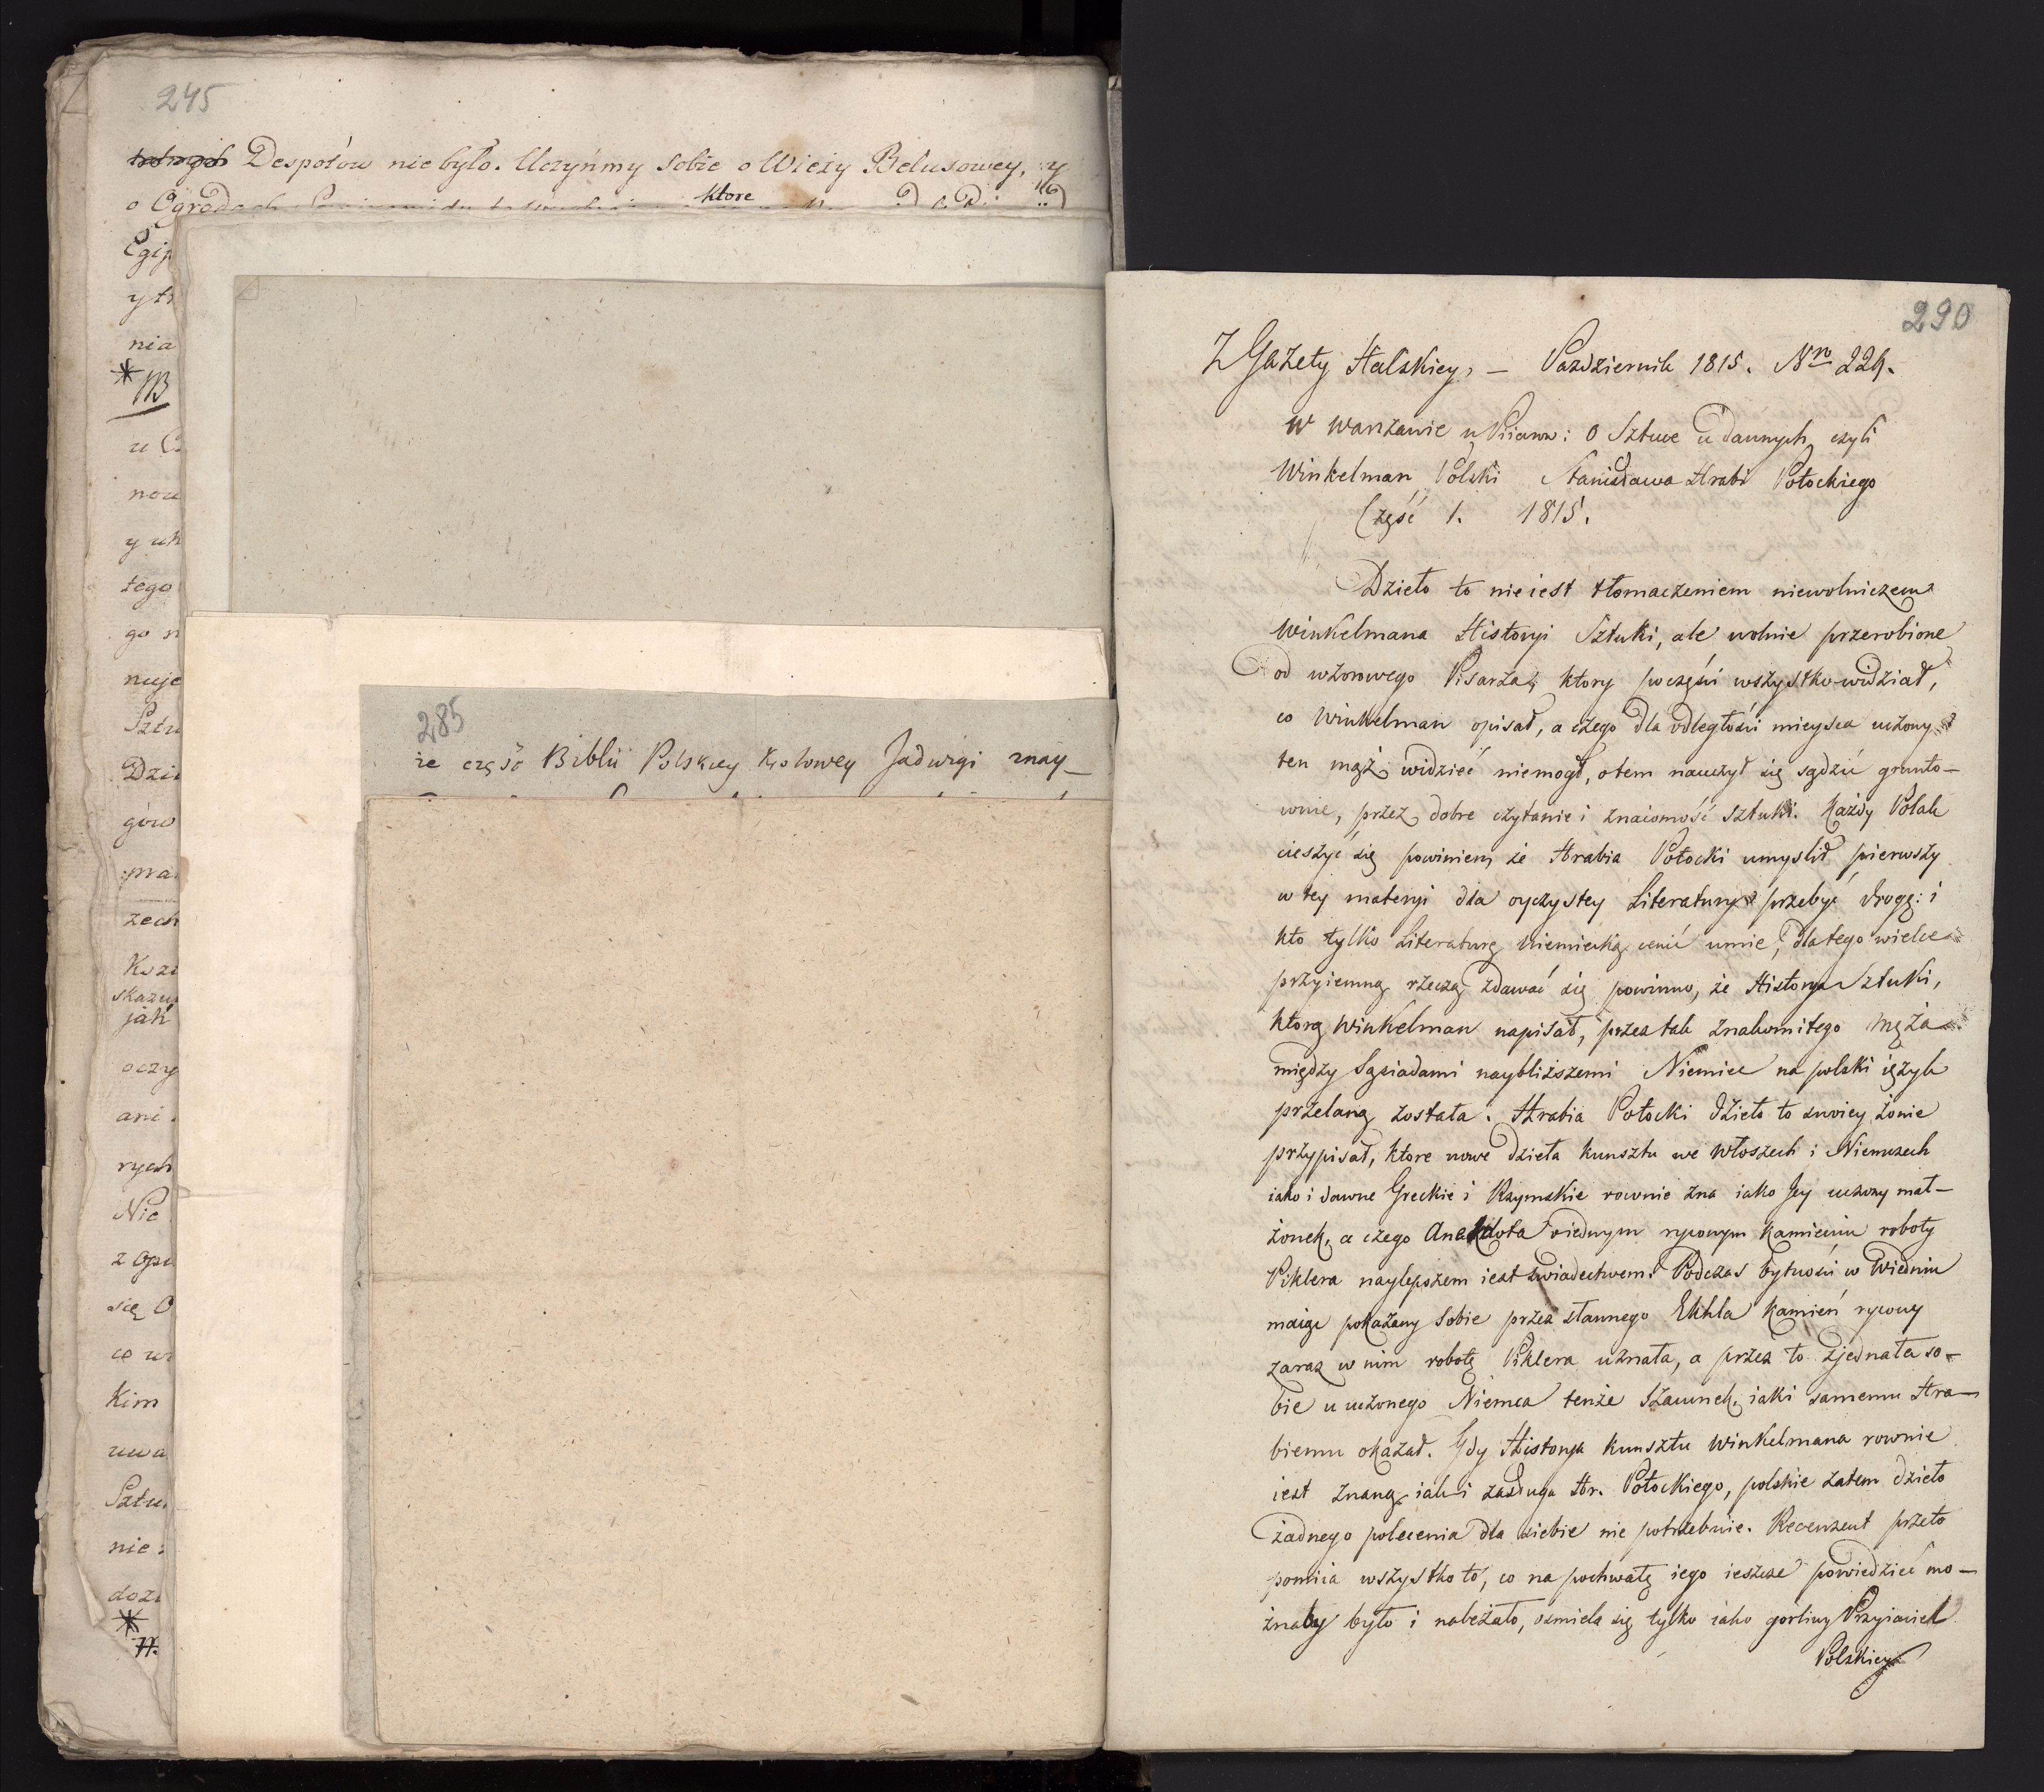 245
Despotów nie było. Uczyńmy sobie o Wieży Belusowey, y
o Ogrodach
ktore
Egip
y tr
nia
*
NB
u C
now
y uk
tego
go n
nuje
Sztu
Dzie
gów
pra
zech
Kszt
skazu
jak
oczy
ani
rych
Nie
z Opi
się O
co
Kim
uwa
Sztu
nie
dozi
*
285
że część Biblii Polskiey Krolowey Jadwigi znay-
290
Z Gazety Halskiey, — Pazdziernik 1815. Nro 229.
w Warszawie u Piiarow: O Sztuce u dawnych, czyli
Winkelman Polski Stanisława Hrabi Potockiego
Część 1. 1815.
Dzieło to nie iest tłomaczeniem niewolniczem
Winkelmana Historyi Sztuki, ale wolnie przerobione
od wzorowego Pisarza, ktory poczęści wszystko widział,
co Winkelman opisał, a czego dla odległości mieysca uczony
ten mąż widzieć niemogł, otem nauczył się sądzić grunto-
wnie, przez dobre czytanie i znaiomość sztuki. Każdy Polak
cieszyć się powinien, że Hrabia Potocki umyslił pierwszy
w tey materyi dla oyczystey Literatury przebyć drogę: i
kto tylko Literaturę Niemiecką cenić umie, dlatego wielce
przyiemną rzeczą zdawać się powinno, że Historya Sztuki,
ktorą Winkelman napisał, przez tak znakomitego męża
między Sąsiadami naybliższemi Niemiec na polski ięzyk
przelaną została. Hrabia Potocki dzieło to swoiey żonie
przypisał, ktore nowe dzieła kunsztu we Włoszech i Niemczech
iako i dawne Greckie i Rzymskie rownie zna iako Jey uczony mał-
żonek, a czego Anekdota o iednym rycowym kamieniu roboty
Piklera naylepszem iest swiadectwem. Podczas bytności w Wiedniu
maiąc pokazany sobie przez sławnego Ekhla kamień rycowy
zaraz w nim robotę Piklera uznała, a przez to zjednała so-
bie u uczonego Niemca tenże szacunek, iaki samemu Hra-
biemu okazał. Gdy Historya kunsztu Winkelmana rownie
iest znaną, iak i zasługa Hr. Potockiego, polskie zatem dzieło
żadnego polecenia dla siebie nie potrzebuie. Recenzent przeto
pomiia wszystko to, co na pochwałę iego ieszcze powiedzieć mo-
żnaby było i należało, osmiela się tylko iako gorliwy Przyiaciel
Polskiey